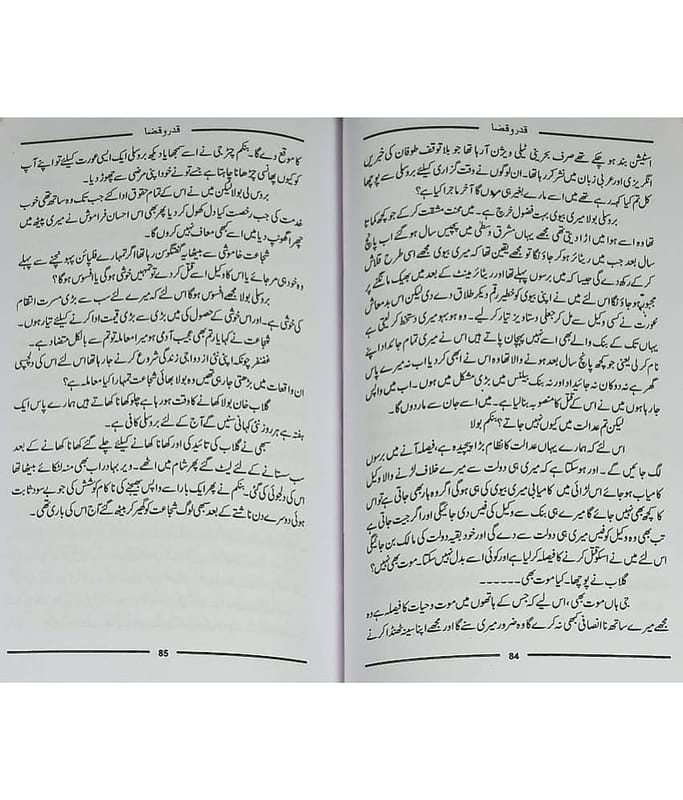 قدر و قضا
اسٹیشن بند ہو چکے تھے صرف بحرینی ٹیلی ویژن آ رہا تھا جو بلا توقف طوفان کی خبریں
انگریزی اور عربی زبان میں نشر کر رہا تھا۔ ان لوگوں نے وقت گزاری کیلئے بروسلی سے پوچھا
کل تم کیا کہہ رہے تھے میں اسے مارے بغیر ہی مروں گا آخر ماجرا کیا ہے؟
بروسلی بولا میری بیوی بہت فضول خرچ ہے۔ میں محنت مشقت کر کے جو کچھ کماتا
تھا وہ اسے ہوا میں اڑا دیتی تھی مجھے یہاں مشرق وسطیٰ میں پچیس سال ہو گئے اب پانچ
سال بعد جب میں ریٹائر ہو کر جاؤنگا تو مجھے یقین تھا کہ میری بیوی مجھے اسی طرح قلاش
کر کے رکھ دے گی جیسا کہ میں برسوں پہلے تھا اور ریٹائرمینٹ کے بعد میں بھیک مانگنے پر
مجبور ہو جاؤنگا اس لئے میں نے اپنی بیوی کو خطیر رقم دیکر طلاق دے دی لیکن اس بدمعاش
عورت نے کسی وکیل سے مل کر جعلی دستاویز تیار کر لیے۔ وہ ہو بہو میری دستخط کر لیتی ہے
یہاں تک کے بنک والے بھی اسے نہیں پہچان پاتے ہیں اس نے میری تمام جائداد اپنے
نام کر لی یعنی جو کچھ پانچ سال بعد ہونے والا تھا وہ اس نے ابھی کر دیا اب نہ میرے پاس
گھر ہے نہ دوکان نہ جائیداد اور نہ بنک بیلنس میں بڑی مشکل میں ہوں۔ اب میں واپس
جا رہا ہوں میں نے اس کے قتل کا منصوبہ بنا لیا ہے۔ میں اسے جان سے مار دوں گا۔
لیکن تم عدالت میں کیوں نہیں جاتے؟ بنکم بولا
اس لئے کہ ہمارے یہاں عدالت کا نظام بڑا پیچیدہ ہے، فیصلہ آنے میں برسوں
لگ جائیں گے۔ اور ہو سکتا ہے کہ میری ہی دولت سے میرے خلاف لڑنے والا وکیل
کامیاب ہو جائے اس لڑائی میں کامیابی میری بیوی کی ہی ہوگی اگر وہ ہار بھی جاتی ہے تو اس
کا کچھ بھی نہیں جائے گا میرے ہی بنک سے وکیل کی فیس دی جائیگی اور اگر جیت جاتی ہے
تب بھی وہ وکیل کو فیس میری ہی دولت سے دے گی اور خود بقیہ دولت کی مالک بن جائیگی
اس لئے میں نے اسکو قتل کرنے کا فیصلہ کر لیا ہے اور کوئی اسے بدل نہیں سکتا۔ موت بھی نہیں؟
گلاب نے پوچھا۔ کیا موت بھی ۔۔۔۔۔۔
جی ہاں موت بھی، اس لیے کہ جس کے ہاتھوں میں موت و حیات کا فیصلہ ہے وہ
مجھے میرے ساتھ نا انصافی کبھی نہ کرے گا وہ ضرور میری سنے گا اور مجھے اپنا سینہ ٹھنڈا کرنے
84
قدر و قضا
کا موقع دے گا۔ بنکم چٹرجی نے اسے سمجھایا دیکھ بروسلی ایک ایسی عورت کیلئے تو اپنے آپ
کو کیوں پھانسی چڑھانا چاہتا ہے جسے تو نے خود اپنی مرضی سے چھوڑ دیا۔
بروس لی بولا لیکن میں نے اس کے تمام حقوق ادا کئے جب تک وہ ساتھ تھی خوب
خدمت کی جب رخصت کیا دل کھول کر دیا پھر بھی اس احسان فراموش نے میری پیٹھ میں
چھرا گھونپ دیا میں اسے کبھی معاف نہیں کروں گا۔
شجاعت خاموشی سے بیٹھا یہ گفتگو سن رہا تھا اگر تمہارے فلپائن پہونچنے سے پہلے
وہ خود ہی مر جائے یا اس کا وکیل اسے قتل کر دے تو تمہیں خوشی ہوگی یا افسوس ہوگا؟
بروسلی بولا مجھے افسوس ہوگا اس لئے کہ میرے لئے سب سے بڑی مسرت انتقام
کی خوشی ہے۔ اور اس خوشی کے حصول کی میں بڑی سے بڑی قیمت ادا کرنے کیلئے تیار ہوں۔
شجاعت نے کہا یار تم بھی عجیب آدمی ہو میرا معاملہ تو تم سے بالکل متضاد ہے۔
غضنفر چونکہ اپنی نئی ازدواجی زندگی شروع کرنے جا رہا تھا اس لئے اس کی دلچسپی
ان واقعات میں بڑھتی جا رہی تھیں وہ بولا بھائی شجاعت تمہارا کیا معاملہ ہے؟
گلاب خان بولا کھانے کا وقت ہو رہا ہے چلو کھانا کھاتے ہیں ہمارے پاس ایک
ہفتہ ہے ہر روز نئی کہانی سنیں گے آج کے لئے بروسلی کافی ہے۔
سبھی نے گلاب کی تائید کی اور کھانا کھانے کیلئے چلے گئے کھانا کھانے کے بعد
سب سستانے کے لئے لیٹ گئے پھر شام میں اٹھے۔ ویر بہادر اب بھی منہ لٹکائے بیٹھا تھا
اس کی دلجوئی کی گئی۔ بنکم نے پھر ایک بار اسے واپس بھیجنے کی ناکام کوشش کی جو بے سود ثابت
ہوئی دوسرے دن ناشتے کے بعد سبھی لوگ شجاعت کو گھیر کر بیٹھ گئے آج اس کی باری تھی۔
85